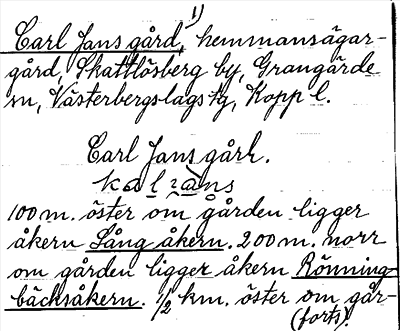 1)
Carl Jans gård, hemmansägar-
gård, Skattlösberg by, Grangärde
sn, Västerbergslags tg, Kopp l.
Carl Jans gård.
100 m. öster om gården ligger
åkern Lång åkern. 200 m. norr
om gården ligger åkern Rönning
bäcksåkern. 1/2 km. öster om går-
(forts)